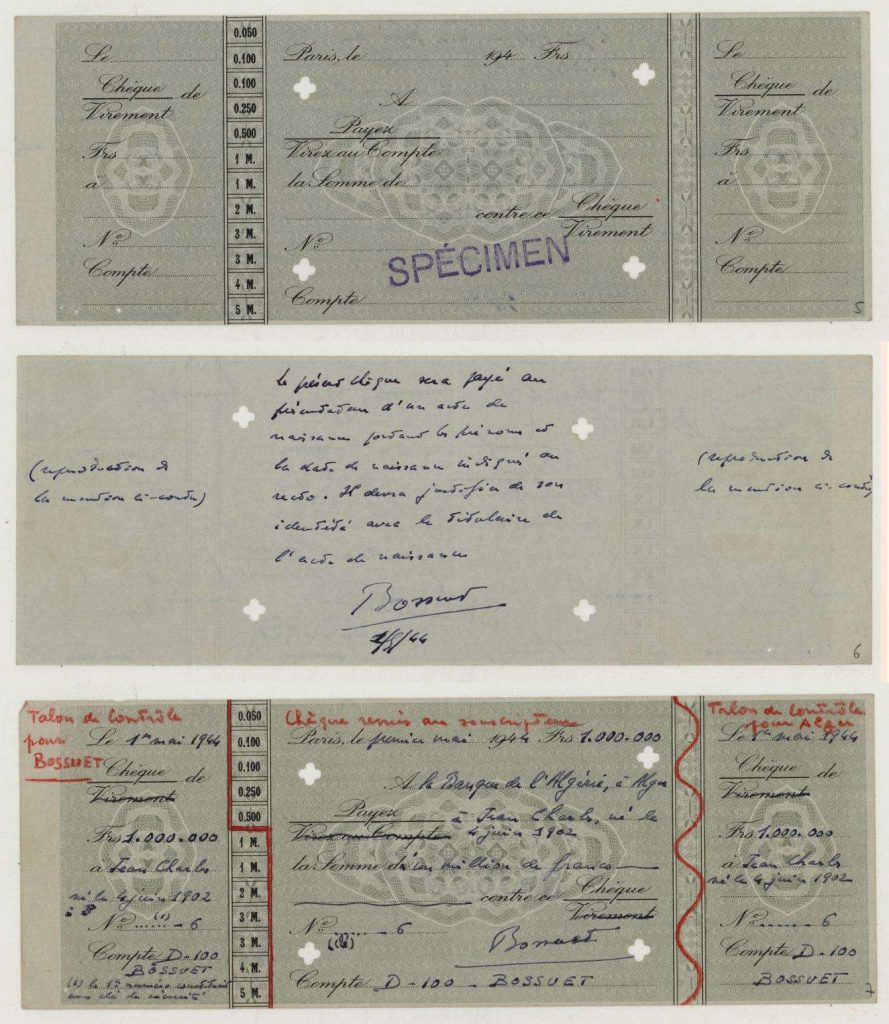 Le
Chèque de
Virement
Frs
à
No
Compte
0.050
0.100
0.100
0.250
0.500
1 M.
1 M.
2 M.
3 M.
3 M.
4 M.
5 M.
Paris, le 194 Frs
A
Payez
Virez au Compte
la Somme de
contre ce Chèque
Virement
No
SPÉCIMEN
Compte
Le
Chèque de
Virement
Frs
à
No
Compte
5
(reproduction de
la mention ci-contre)
le présent chèque sera payé au
présentateur d'un acte de
naissance portant les prénoms et
la date de naissance indiqués au
recto. Il devra justifier de son
identité avec le titulaire de
l'acte de naissance
Bossuet
1/5/44
(reproduction de
la mention ci-contre)
6
Talon de Contrôle
pour
BOSSUET
Le 1er mai 1944
Chèque de
Virement
Frs 1.000.000
à Jean Charles
né le 4 juin 1902
No ...... - 6
(1)
Compte D-100
BOSSUET
(1) le 1er numéro constituant
une clé de sécurité
0.050
0.100
0.100
0.250
0.500
1 M.
1 M.
2 M.
3 M.
3 M.
4 M.
5 M.
Chèque remis au souscripteur
Paris, le premier mai 1944 Frs 1.000.000
A la Banque de l'Algérie, à Alger
Payez à Jean Charles, né le
Virez au Compte 4 juin 1902
la Somme de un million de francs
contre ce Chèque
Virement
No ...... - 6
Bossuet
Compte D-100 - BOSSUET
Talon de Contrôle
pour Alger
Le 1er mai 1944
Chèque de
Virement
Frs 1.000.000
à Jean Charles
né le 4 juin 1902
No ...... - 6
Compte D-100
BOSSUET
7